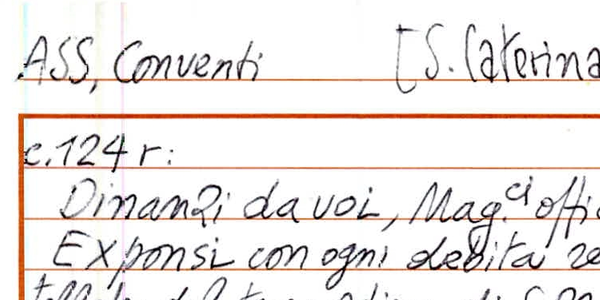 ASS, Conventi [S. Caterina
c.124 r:
Dinanzi da voi, Mag.ci offi
Exponsi con ogni debita re